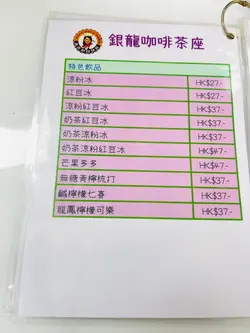 銀龍咖啡茶座
特色飲品
涼粉冰 HK$27-
紅豆冰 HK$27-
涼粉紅豆冰 HK$37-
奶茶紅豆冰 HK$37-
奶茶涼粉冰 HK$37-
奶茶涼粉紅豆冰 HK$47-
芒果多多 HK$47-
無糖青檸梳打 HK$37-
鹹檸檬七喜 HK$37-
龍鳳檸檬可樂 HK$37-